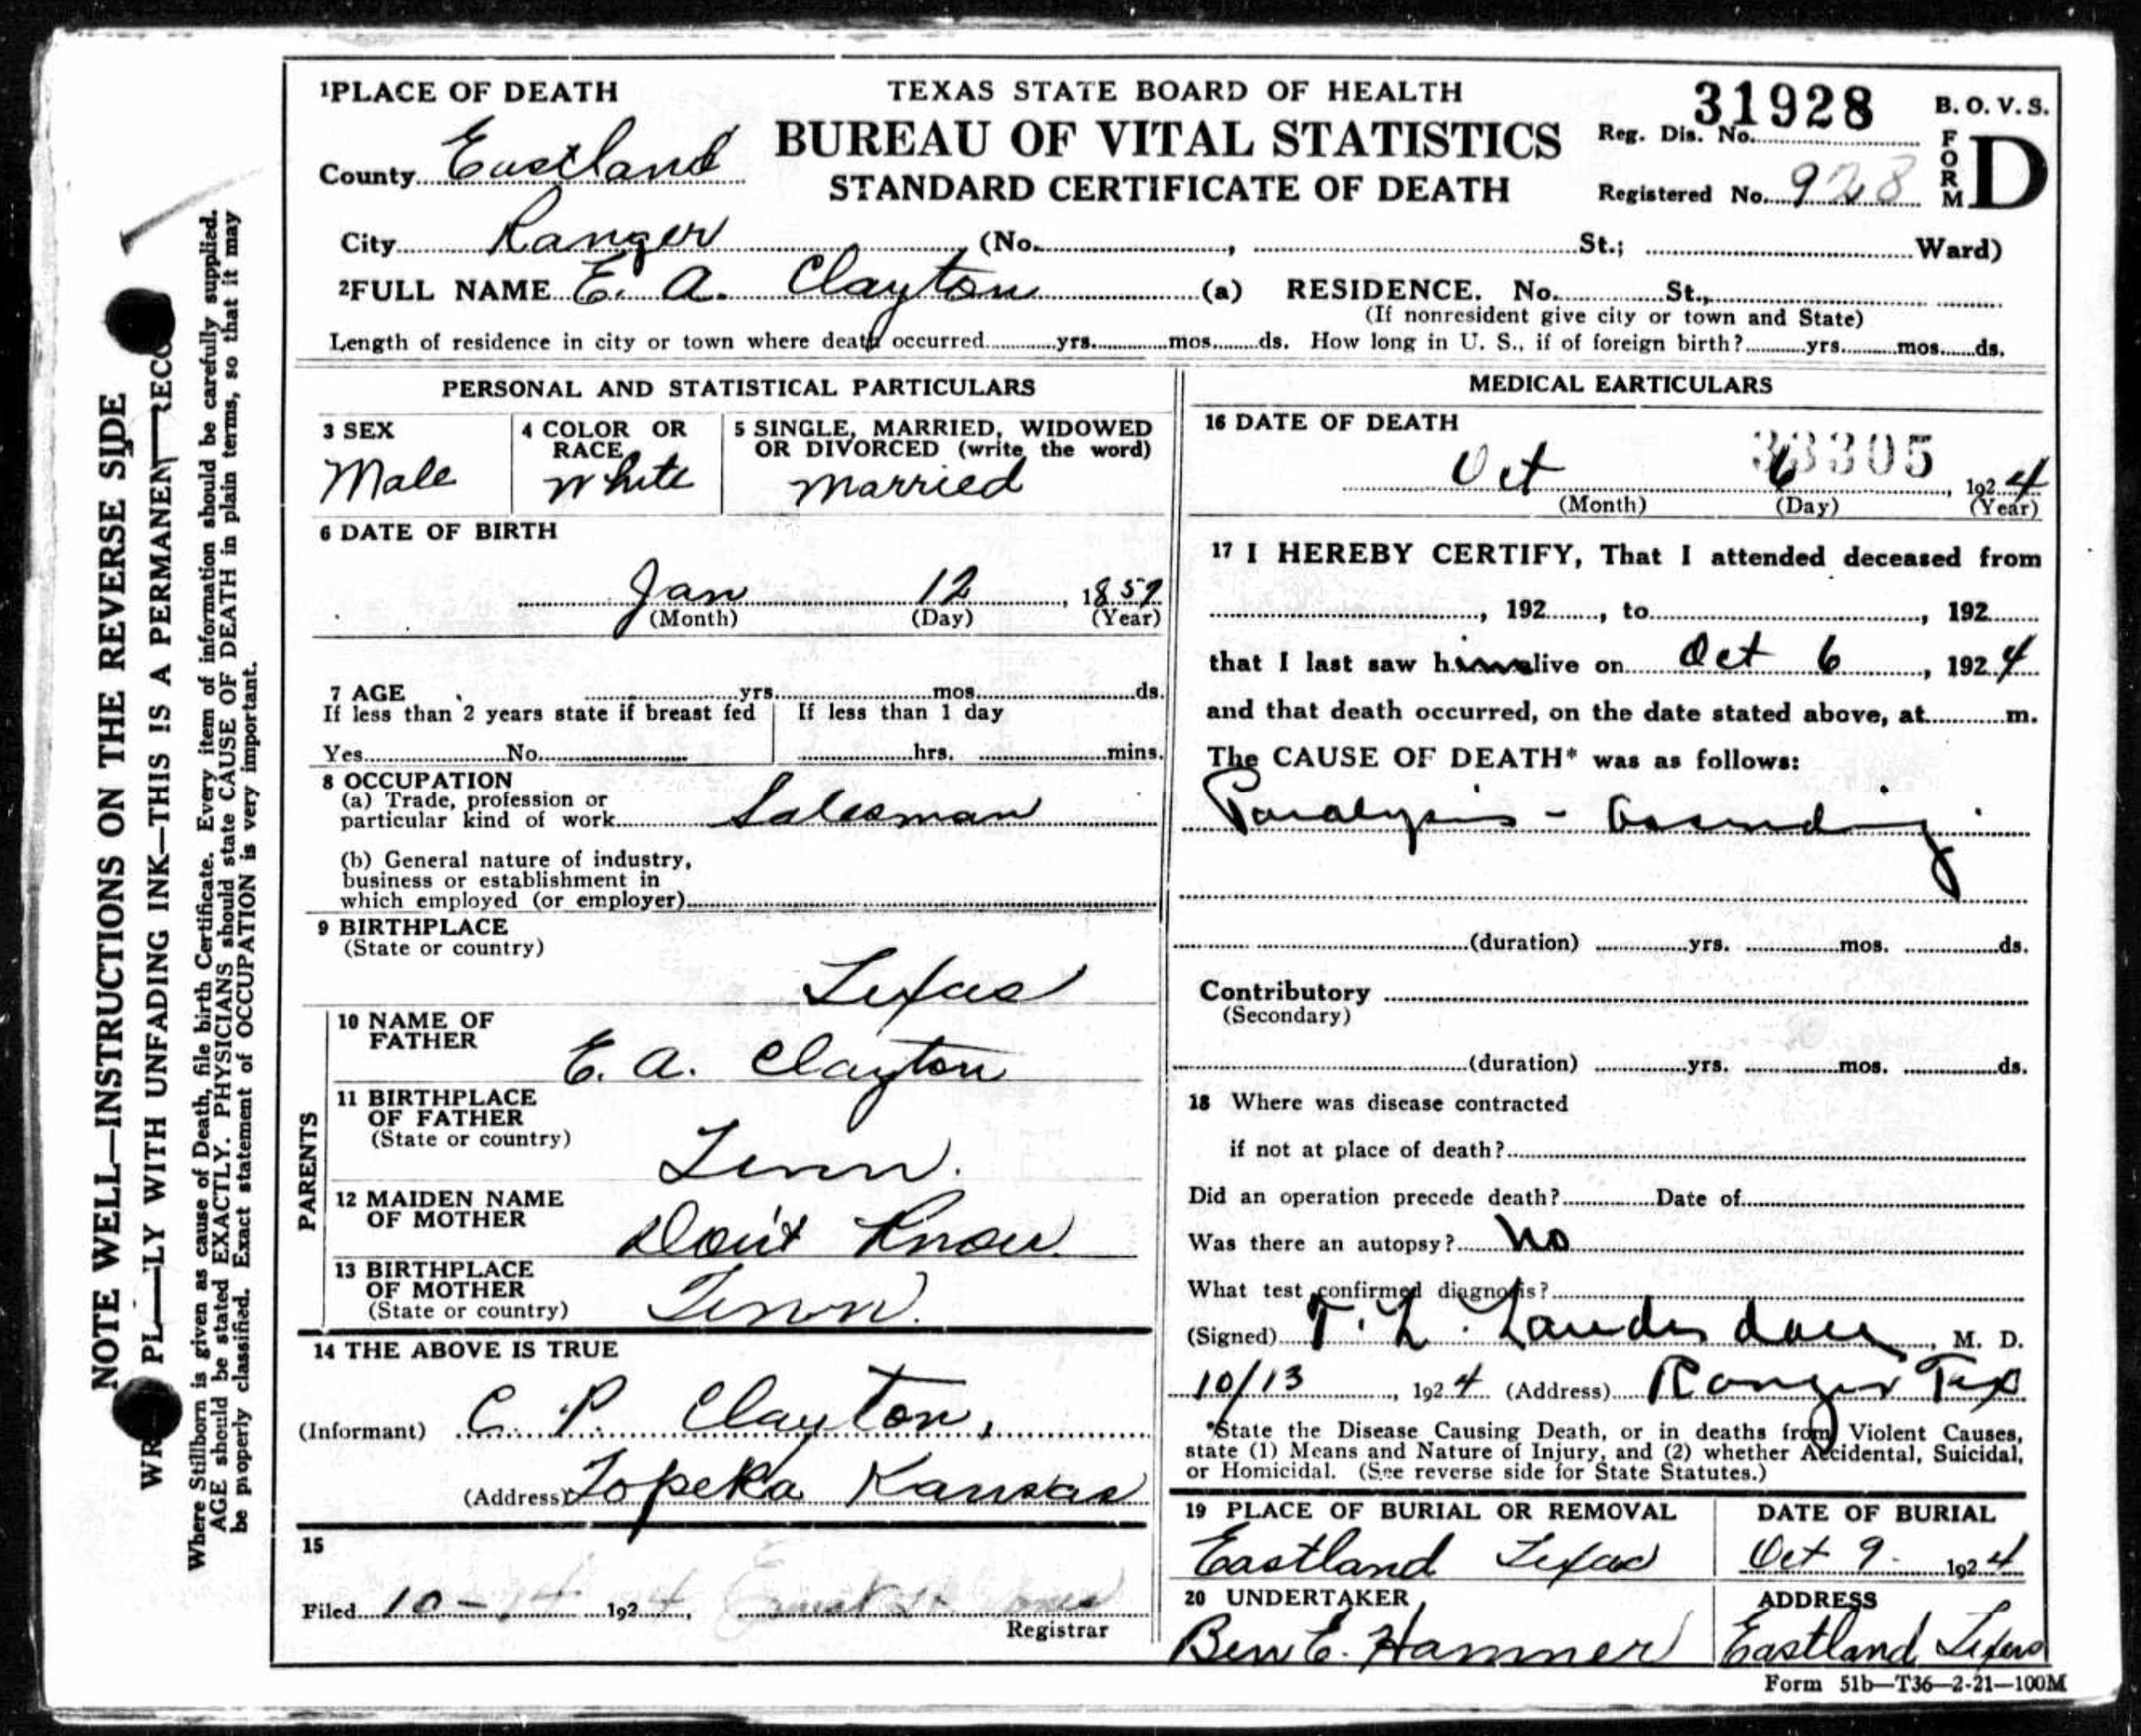 1PLACE OF DEATH
TEXAS STATE BOARD OF HEALTH
31928
B. O. V. S.
County Eastland
BUREAU OF VITAL STATISTICS
Reg. Dis. No.
FORM D
STANDARD CERTIFICATE OF DEATH
Registered No. 928
City Ranger (No. , St.; Ward)
2FULL NAME E. A. Clayton (a) RESIDENCE. No. St.,
(If nonresident give city or town and State)
Length of residence in city or town where death occurred yrs. mos. ds. How long in U. S., if of foreign birth? yrs. mos. ds.
PERSONAL AND STATISTICAL PARTICULARS
3 SEX
Male
4 COLOR OR RACE
White
5 SINGLE, MARRIED, WIDOWED
OR DIVORCED (write the word)
Married
6 DATE OF BIRTH
Jan 12, 1859
(Month) (Day) (Year)
7 AGE yrs. mos. ds.
If less than 2 years state if breast fed
If less than 1 day
Yes No hrs. mins.
8 OCCUPATION
(a) Trade, profession or
particular kind of work Salesman
(b) General nature of industry,
business or establishment in
which employed (or employer)
9 BIRTHPLACE
(State or country)
Texas
PARENTS
10 NAME OF
FATHER
E. A. Clayton
11 BIRTHPLACE
OF FATHER
(State or country)
Tenn.
12 MAIDEN NAME
OF MOTHER
Don't Know
13 BIRTHPLACE
OF MOTHER
(State or country)
Tenn.
14 THE ABOVE IS TRUE
(Informant) C. P. Clayton,
(Address) Topeka Kansas
15
Filed 10-14 1924,
Registrar
MEDICAL EARTICULARS
16 DATE OF DEATH
33305
Oct 6, 1924
(Month) (Day) (Year)
17 I HEREBY CERTIFY, That I attended deceased from
, 192 , to , 192
that I last saw him alive on Oct 6, 1924
and that death occurred, on the date stated above, at m.
The CAUSE OF DEATH* was as follows:
Paralysis -
(duration) yrs. mos. ds.
Contributory
(Secondary)
(duration) yrs. mos. ds.
18 Where was disease contracted
if not at place of death?
Did an operation precede death? Date of
Was there an autopsy? No
What test confirmed diagnosis?
(Signed) T. L. Lauderdale, M. D.
10/13, 1924 (Address) Ranger Tex
*State the Disease Causing Death, or in deaths from Violent Causes,
state (1) Means and Nature of Injury, and (2) whether Accidental, Suicidal,
or Homicidal. (See reverse side for State Statutes.)
19 PLACE OF BURIAL OR REMOVAL
Eastland Texas
DATE OF BURIAL
Oct 9 1924
20 UNDERTAKER
Ben E. Hamner
ADDRESS
Eastland Texas
Form 51b—T36—2-21—100M
NOTE WELL—INSTRUCTIONS ON THE REVERSE SIDE
WR PL LY WITH UNFADING INK—THIS IS A PERMANENT RECO
Where Stillborn is given as cause of Death, file birth Certificate. Every item of information should be carefully supplied.
AGE should be stated EXACTLY. PHYSICIANS should state CAUSE OF DEATH in plain terms, so that it may
be properly classified. Exact statement of OCCUPATION is very important.